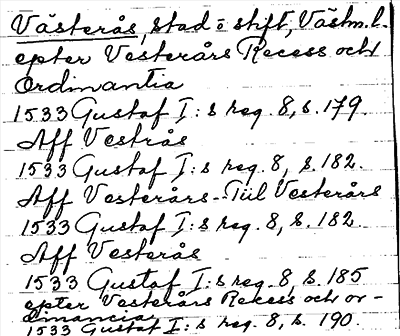 Västerås, stad o stift, Västm. l.
epter Vesterårs Recess och
Ordinantia
1533 Gustaf I:s reg. 8, s. 179.
Aff Vestrås
1533 Gustaf I:s reg. 8, s. 182.
Aff Vesterårs - Till Vesterårs
1533 Gustaf I:s reg. 8, s. 182.
Aff Vesterås
1533 Gustaf I:s reg. 8, s. 185
epter Vesterårs Recess och or-
dinancia
1533 Gustaf I:s reg. 8, s. 190.